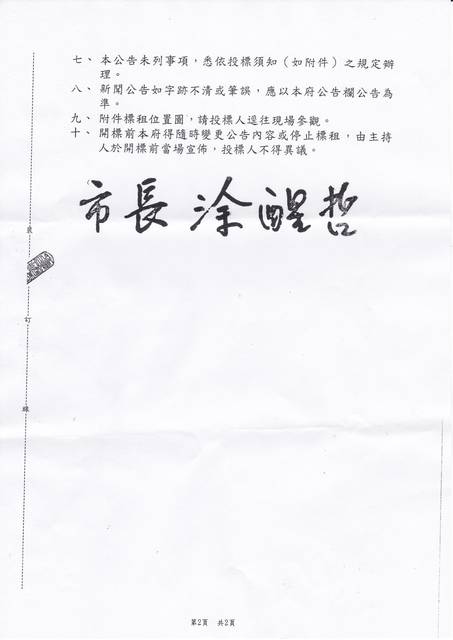 七、本公告未列事項，悉依投標須知（如附件）之規定辦
理。
八、新聞公告如字跡不清或筆誤，應以本府公告欄公告為
準。
九、附件標租位置圖，請投標人逕往現場參觀。
十、開標前本府得隨時變更公告內容或停止標租，由主持
人於開標前當場宣佈，投標人不得異議。
市長涂醒哲
裝
訂
線
第2頁 共2頁